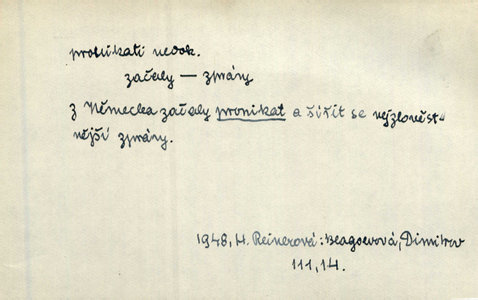 pronikati nedok.
začaly — zprávy
z Německa začaly pronikat a šířit se nejzlověst-
nější zprávy.
1948, H. Reinerová: Blagoevová, Dimitrov
111, 14.